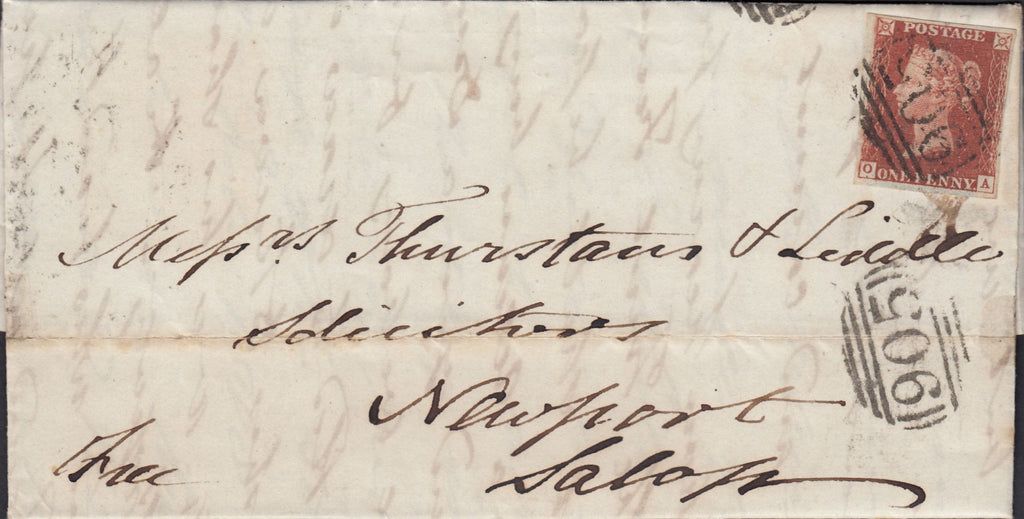 POSTAGE
ONE PENNY
O A
Messrs Thurstans & Liddle
Solicitors
Newport
Salop
Free
506